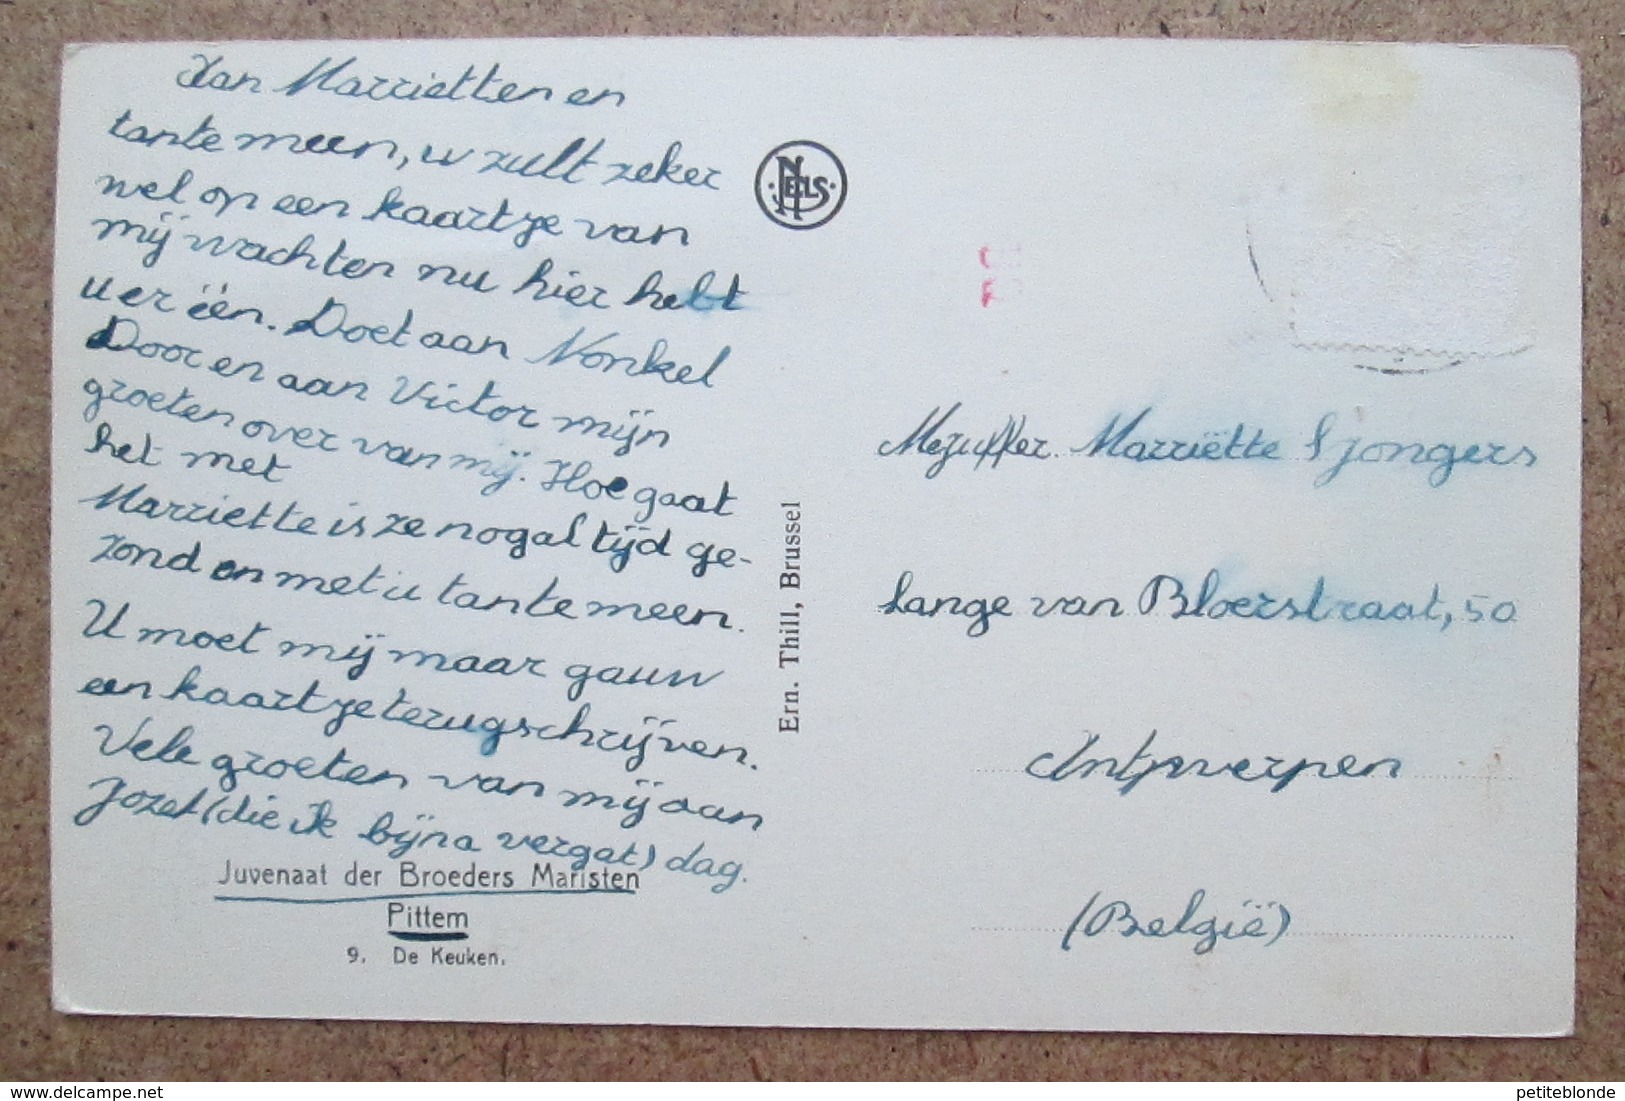 Aan Marrietten en
tante meen, u zult zeker
wel op een kaartje van
mij wachten nu hier hebt
u er één. Doet aan Nonkel
Door en aan Victor mijn
groeten over van mij. Hoe gaat
het met
Marriette is ze nogal tijd ge-
zond en met u tante meen.
U moet mij maar gauw
een kaartje terugschrijven.
Vele groeten van mij aan
Jozef (die ik bijna vergat) dag.
Juvenaat der Broeders Maristen
Pittem
9. De Keuken.
NELS
Ern. Thill, Brussel
Mejuffer. Marriëtte Sjongers
Lange van Bloerstraat, 50
Antpwerpen
(België)
delcampe.net
petiteblonde